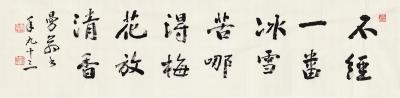 不經
一番
冰雪
苦哪
得梅
花放
清香
曼翁書
年九十三